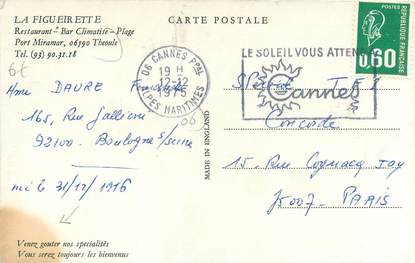 LA FIGUEIRETTE
Restaurant - Bar Climatisé - Plage
Port Miramar, 06590 Theoule
Tel. (93) 90.31.18
CARTE POSTALE
POSTES
0,60
REPUBLIQUE FRANÇAISE
06 CANNES Ppal
19 H
12-12
1975
ALPES MARITIMES
LE SOLEIL VOUS ATTEND
Cannes
Mme DAURE
165, Rue Gallieni
92100. Boulogne s/seine
né le 31/12/1916
Concorde
15, Rue Cognacq Jay
75007. PARIS
MADE IN ENGLAND
06
Venez gouter nos specialités
Vous serez toujours les bienvenus